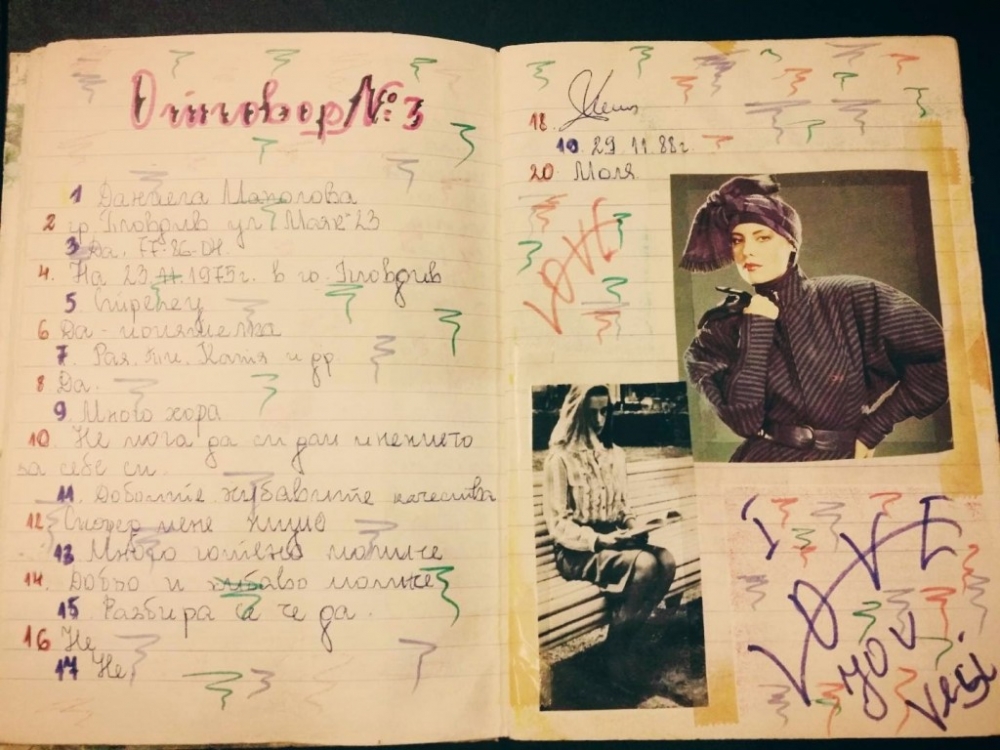 Отговор №3
1 Даниела Манолова
2 гр Пловдив ул "Маяк" 23
3 Да. 77-86-04.
4. На 23 1975г. в гр. Пловдив
5
6 Да - приятелка
7. Рая. Катя и др.
8 Да.
9. Много хора
10. Не мога да си дам мнението
за себе си.
11. хубавите качества
12 Според мене нищо
13 Много готино момиче
14. Добро и хубаво момиче
15 Разбира се че да.
16 Не
17 Не
18.
19. 29 11 88г.
20 Моля
LOVE
I
LOVE
YOU